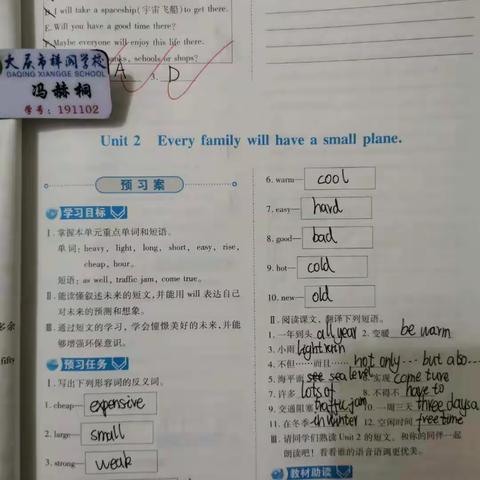 D. I will take a spaceship(宇宙飞船)to get there.
E. Will you have a good time there?
F. Maybe everyone will enjoy this life there.
schools or shops?
A 3. D
大庆市祥阁学校
DAQING XIANGGE SCHOOL
冯赫桐
学号:191102
Unit 2 Every family will have a small plane.
预习案
学习目标
Ⅰ. 掌握本单元重点单词和短语。
单词:heavy, light, long, short, easy, rise,
cheap, hour。
短语:as well, traffic jam, come true。
Ⅱ. 能读懂叙述未来的短文,并能用 will 表达自己
对未来的预测和想象。
Ⅲ. 通过短文的学习,学会憧憬美好的未来,并能
够增强环保意识。
预习任务
Ⅰ. 写出下列形容词的反义词。
1. cheap— expensive
2. large— small
3. strong— weak
6. warm— cool
7. easy— hard
8. good— bad
9. hot— cold
10. new— old
Ⅱ. 阅读课文,翻译下列短语。
1. 一年到头 all year 2. 变暖 be warm
3. 小雨 light rain
4. 不但……而且…… not only... but also...
5. 海平面 see sea level 6. 实现 come ture
7. 许多 lots of 8. 不得不 have to
9. 交通阻塞 traffic jam 10. 一周三天 three days a
11. 在冬季 in winter 12. 空闲时间 free time
Ⅲ. 请同学们熟读 Unit 2 的短文,和你的同伴一起
朗读吧!看看谁的语音语调更优美。
教材助读
多余
fifty